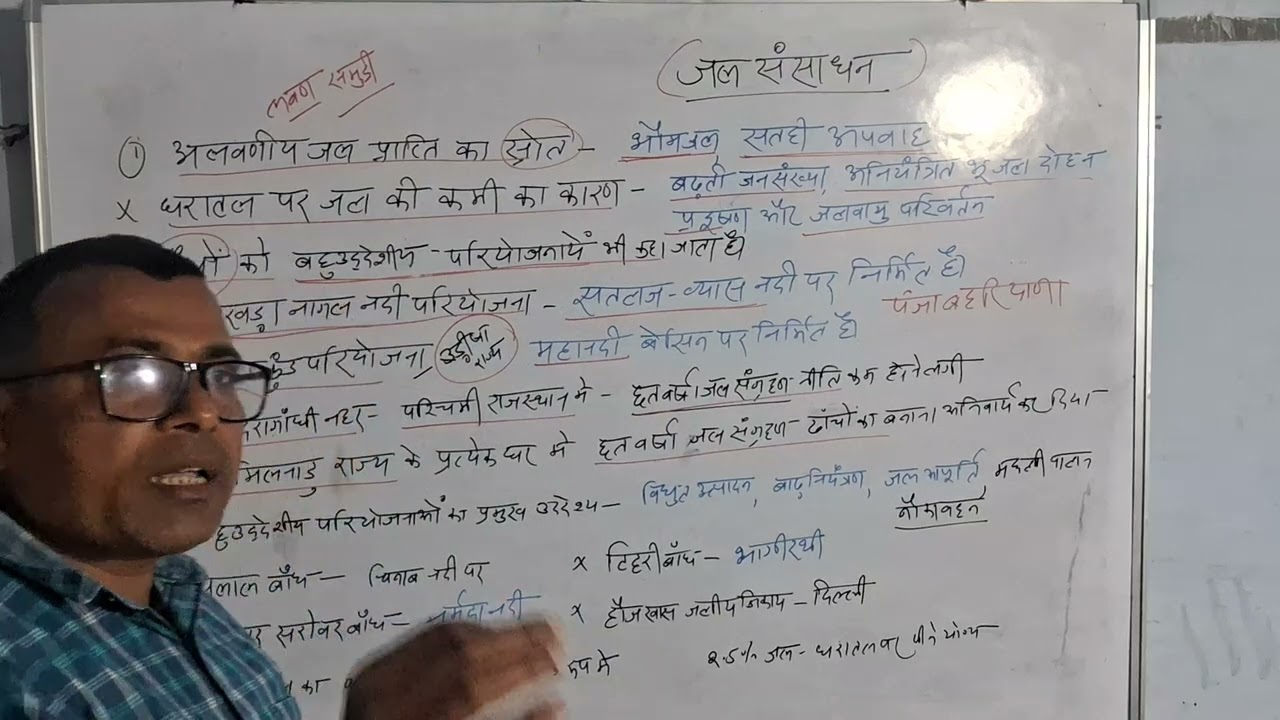 जल संसाधन
लवण समुद्री
① अलवणीय जल प्राप्ति का स्रोत - भौमजल सतही अपवाह
x धरातल पर जल की कमी का कारण - बढ़ती जनसंख्या, अनियंत्रित भू जल दोहन
प्रदूषण और जलवायु परिवर्तन
को बहुउद्देशीय - परियोजनायें भी कहा जाता है।
नांगल नदी परियोजना - सतलज - व्यास नदी पर निर्मित है।
पंजाब हरियाणा
परियोजना, उड़ीषा राज्य महानदी बेसिन पर निर्मित है।
नहर - पश्चिमी राजस्थान मे - छत वर्षा जल संग्रहण नीति कम होने लगी
राज्य के प्रत्येक घर मे छत वर्षा जल संग्रहण - ढाँचों का बनाना अनिवार्य कर दिया -
परियोजनाओं का प्रमुख उददेश्य - विधुत उत्पादन, बाढ़ नियंत्रण, जल आपूर्ति, मछली पालन
नौकावहन
बाँध - चिनाब नदी पर x टिहरी बाँध - भागीरथी
सरोवर बाँध - नर्मदा नदी x हौज खास जलीय निकाय - दिल्ली
का रूप मे 2.5% जल - धरातल पर पीने योग्य